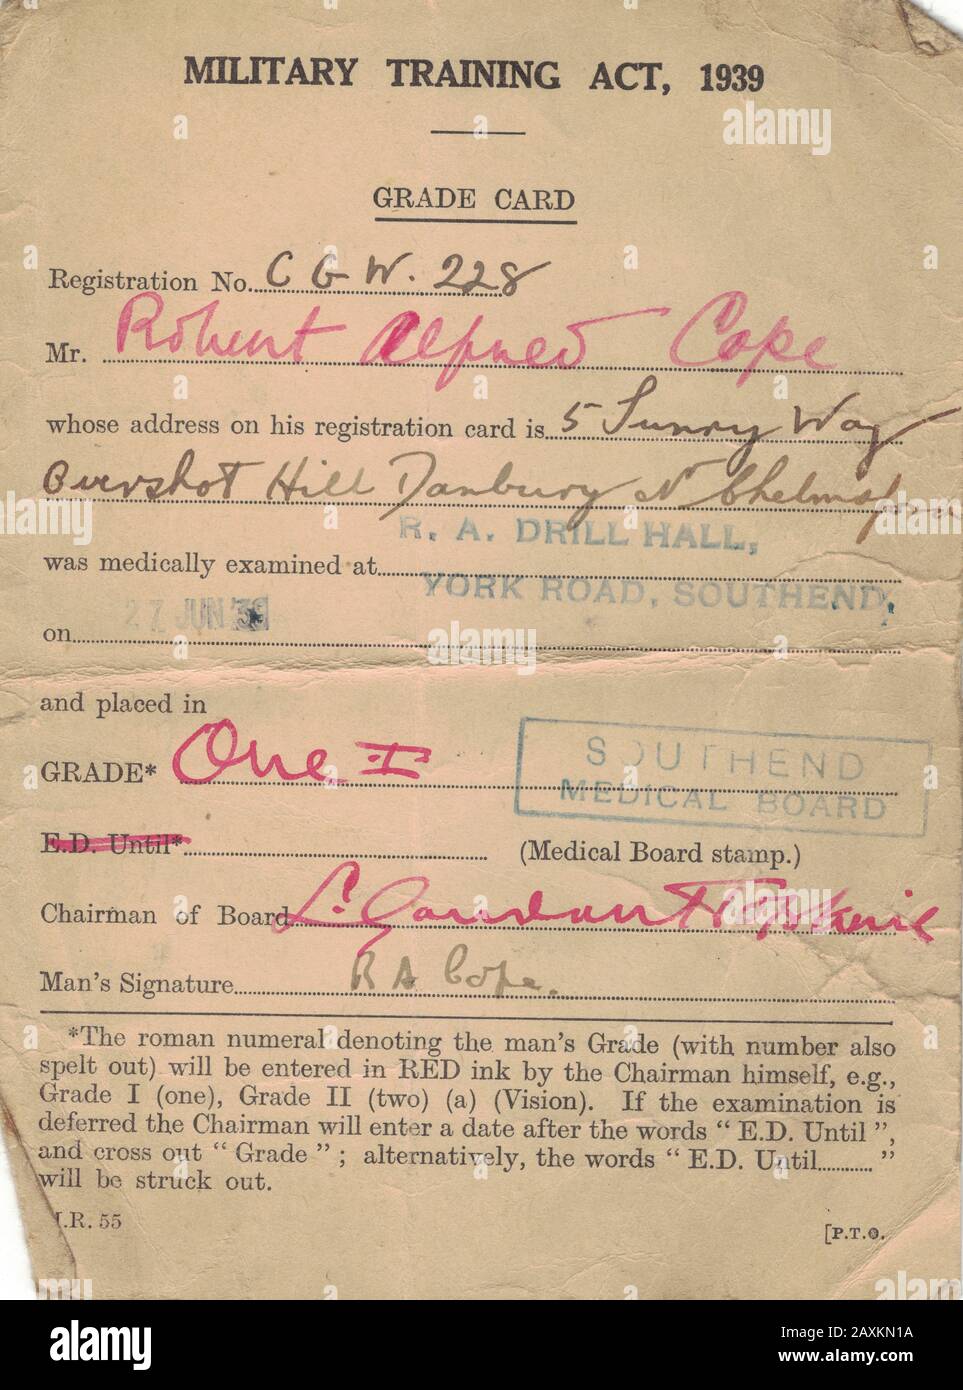 MILITARY TRAINING ACT, 1939
GRADE CARD
Registration No. C G W. 228
Mr. Robert Alfred Cope
whose address on his registration card is 5 Sunny Way
Overshot Hill Danbury Nr Chelmsford
was medically examined at R. A. DRILL HALL,
YORK ROAD, SOUTHEND,
on 27 JUN 39
and placed in
GRADE* One I
SOUTHEND
MEDICAL BOARD
E.D. Until* (Medical Board stamp.)
Chairman of Board
Man's Signature R A Cope.
*The roman numeral denoting the man's Grade (with number also
spelt out) will be entered in RED ink by the Chairman himself, e.g.,
Grade I (one), Grade II (two) (a) (Vision). If the examination is
deferred the Chairman will enter a date after the words "E.D. Until",
and cross out "Grade"; alternatively, the words "E.D. Until............"
will be struck out.
.R. 55
[P.T.O.
alamy
Image ID: 2AXKN1A
www.alamy.com